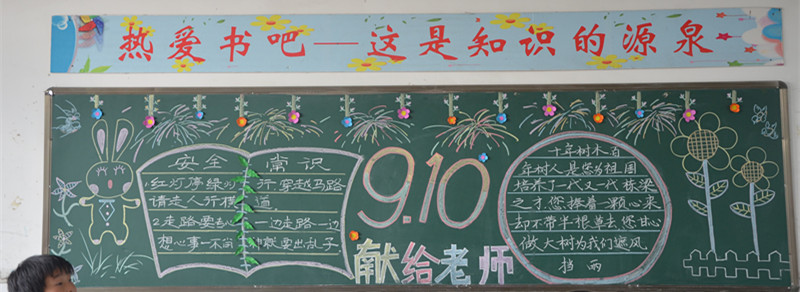 热爱书吧—这是知识的源泉
安全常识
1.红灯停绿灯行,穿越马路
请走人行横道
2.走路要专心一边走路一边
想心事一不留神就要出乱子
9.10
献给老师
十年树木百
年树人是您为祖国
培养了一代又一代栋梁
之才,您捧着一颗心来
却不带半根草去您甘心
做大树为我们遮风
挡雨